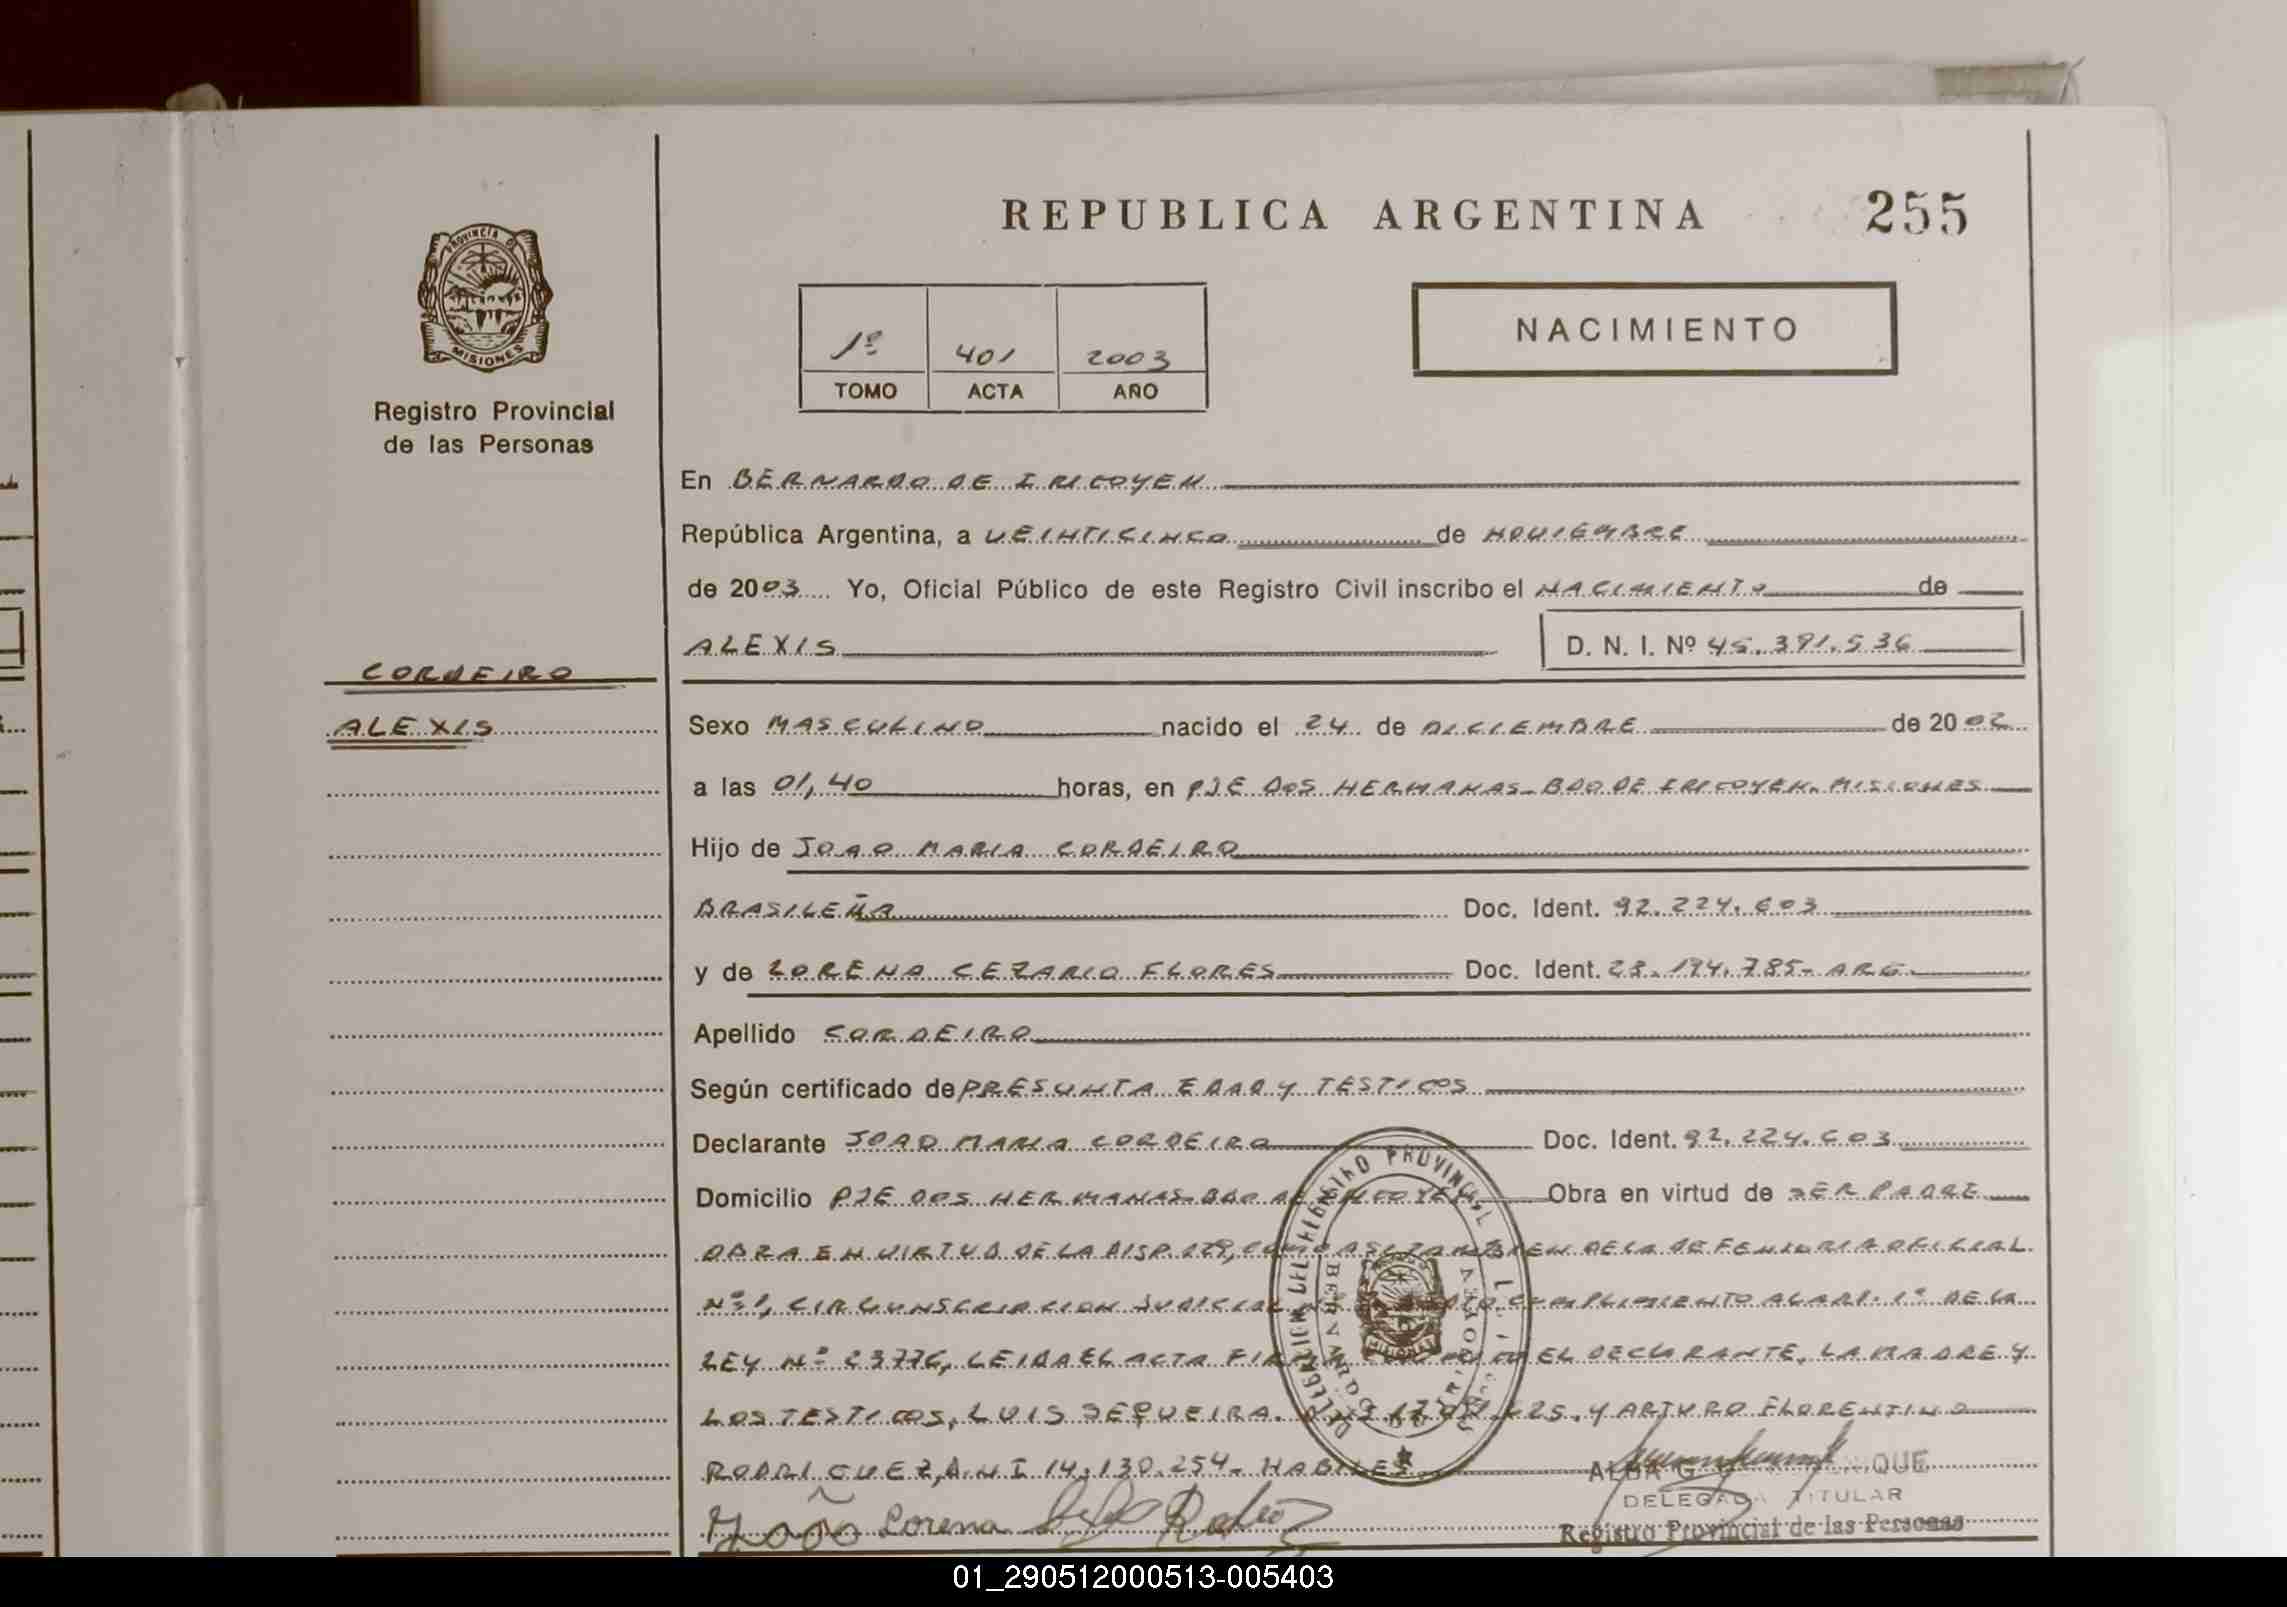 REPUBLICA ARGENTINA 255
PROVINCIA DE
MISIONES
Registro Provincial
de las Personas
1º 401 2003
TOMO ACTA AÑO
NACIMIENTO
En BERNARDO DE IRIGOYEN
República Argentina, a VEINTICINCO de NOVIEMBRE
de 2003 Yo, Oficial Público de este Registro Civil inscribo el NACIMIENTO de
ALEXIS D. N. I. Nº 45.391.536
CORDEIRO
ALEXIS
Sexo MASCULINO nacido el 24 de DICIEMBRE de 2002
a las 01,40 horas, en PJE DOS HERMANAS-BDO DE IRIGOYEN. MISIONES
Hijo de JOAO MARIA CORDEIRO
BRASILEÑA Doc. Ident. 92.224.603
y de LORENA CEZARIO FLORES Doc. Ident. 23.194.785- ARG.
Apellido CORDEIRO
Según certificado de PRESUNTA EDAD Y TESTIGOS
Declarante JOAO MARIA CORDEIRO Doc. Ident. 92.224.603
Domicilio PJE DOS HERMANAS-BDO DE IRIGOYEN Obra en virtud de SER PADRE
OBRA EN VIRTUD DE LA DISP. 179, COMO ASI TAMBIEN DE LA DEFENSORIA OFICIAL
Nº 1, CIRCUNSCRIPCION JUDICIAL CUMPLIMIENTO AL ART. 1º DE LA
LEY Nº 23776, LEIDA EL ACTA FIRMAN EL DECLARANTE, LA MADRE Y
LOS TESTIGOS, LUIS SEQUEIRA. Y ARTURO FLORENTINO
RODRIGUEZ, D.N.I 14.130.254- HABILES
João Lorena
DELEGACION DEL REGISTRO PROVINCIAL DE LAS
BERNARDO DE IRIGOYEN
MISIONES
ALBA G.
DELEGADA TITULAR
Registro Provincial de las Personas
01_290512000513-005403